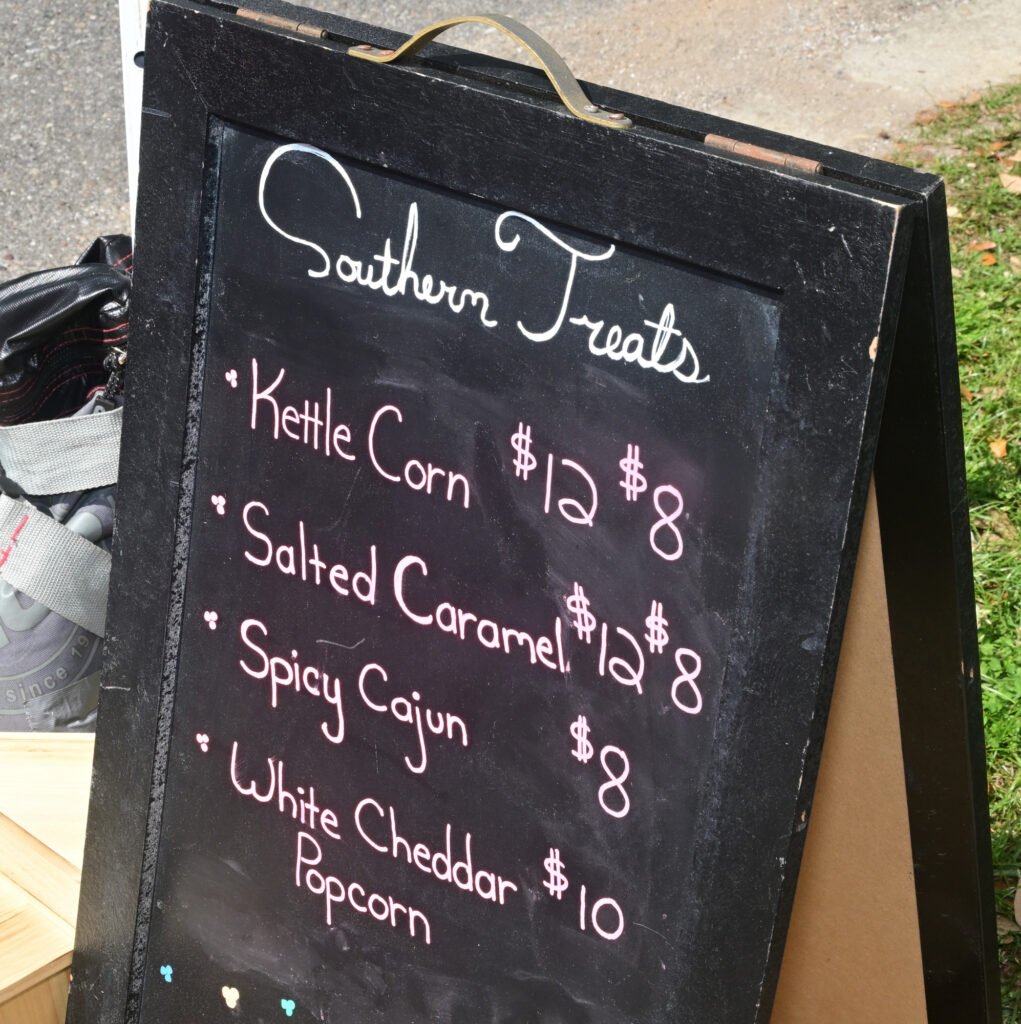 Southern Treats
Kettle Corn $12 $8
Salted Caramel $12 $8
Spicy Cajun $8
White Cheddar $10
Popcorn
since 19